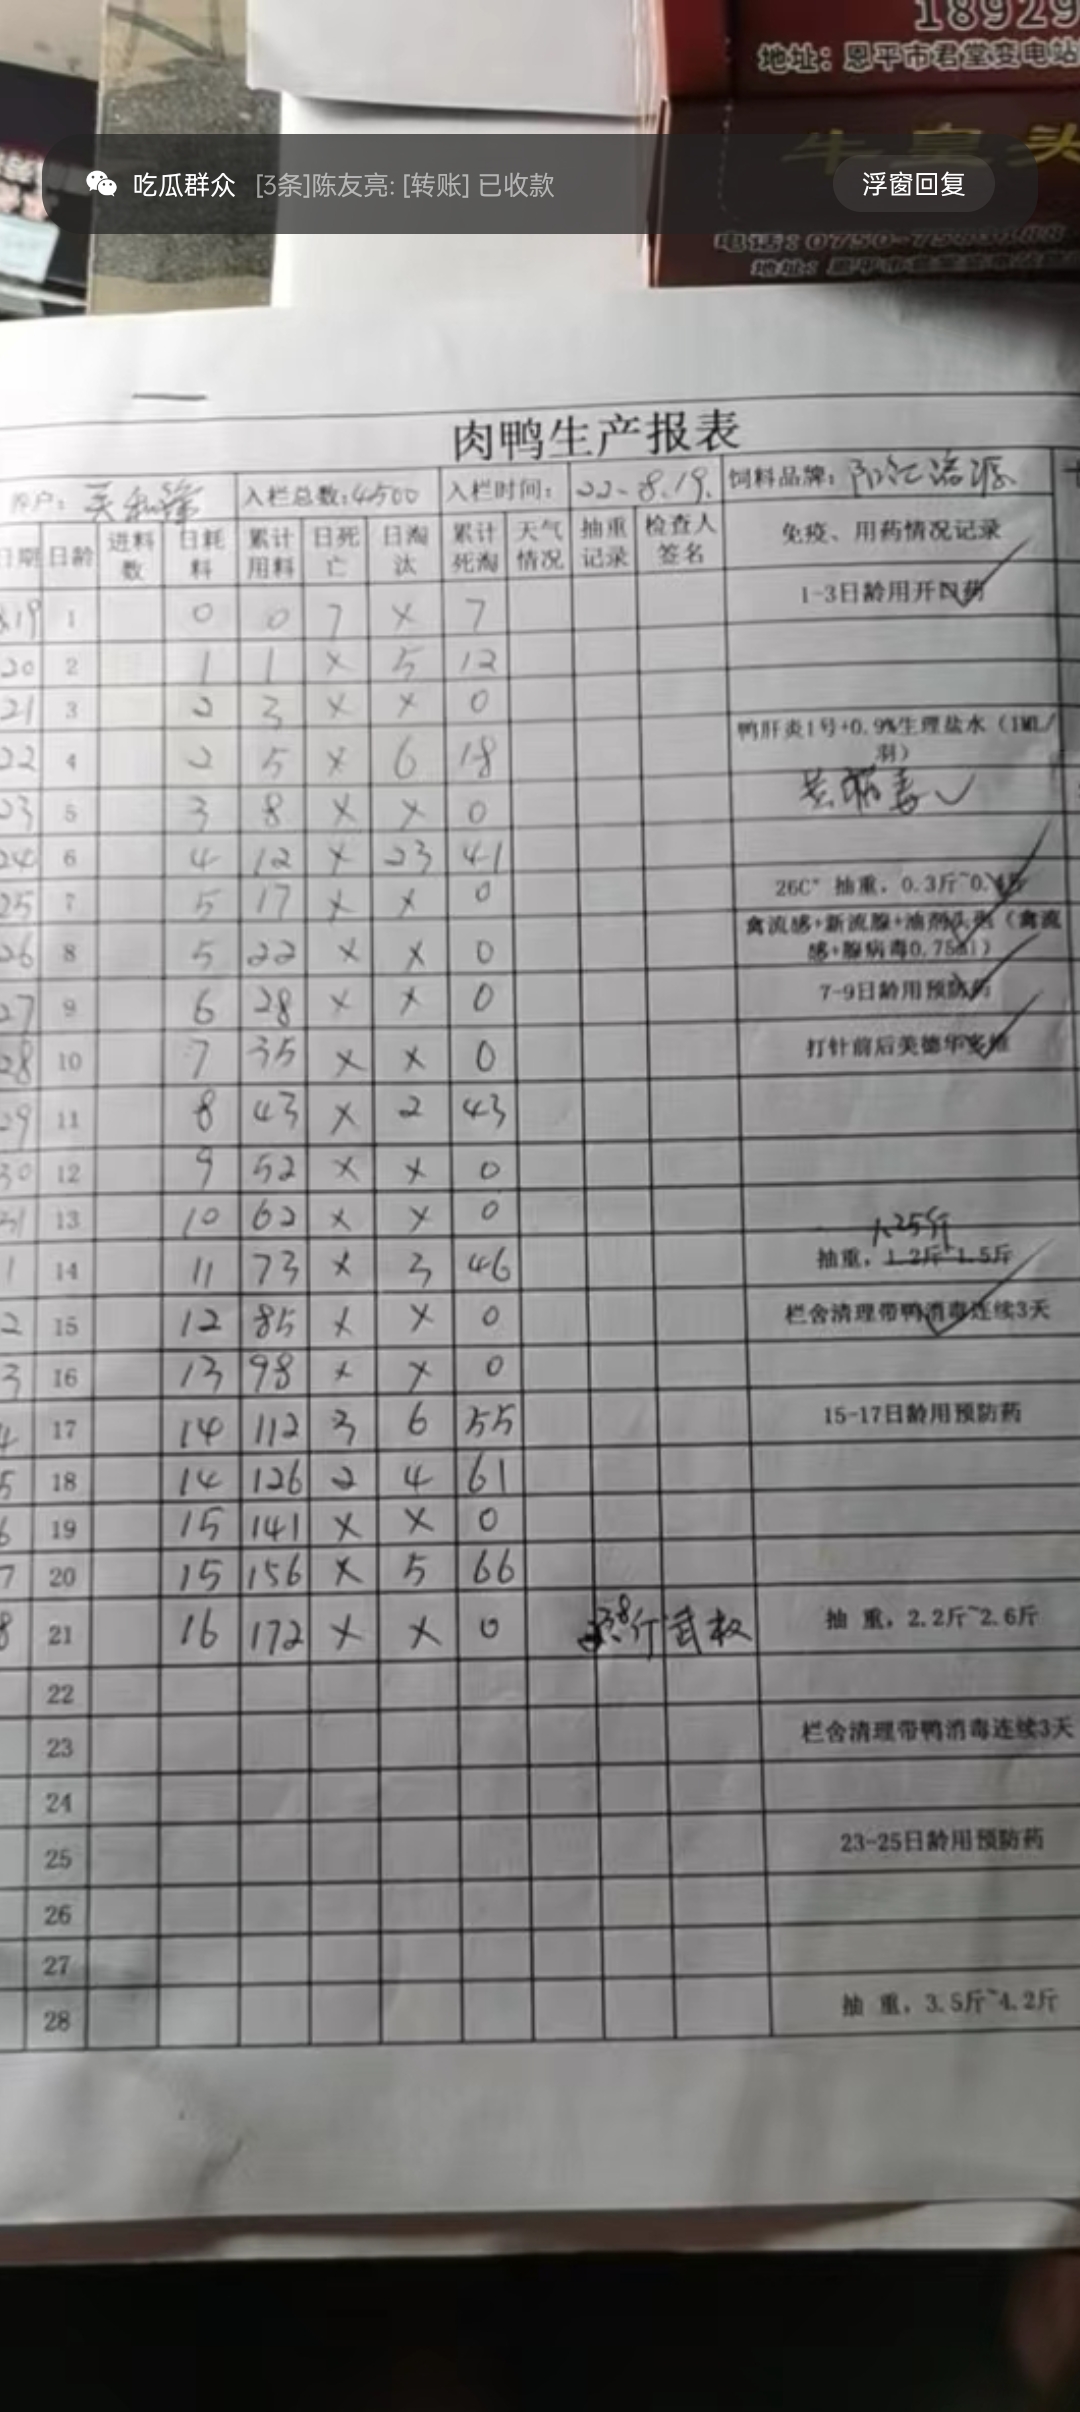 18929
地址：恩平市君堂变电站
牛皇头
吃瓜群众 [3条]陈友亮: [转账] 已收款 浮窗回复
肉鸭生产报表
养户： 入栏总数:4500 入栏时间： 22-8.19. 饲料品牌：
日期 日龄 进料数 日耗料 累计用料 日死亡 日淘汰 累计死淘 天气情况 抽重记录 检查人签名 免疫、用药情况记录
8.19 1 0 0 7 × 7 1-3日龄用开口药
20 2 1 1 × 5 12
21 3 2 3 × × 0
22 4 2 5 × 6 18 鸭肝炎1号+0.9%生理盐水（1ML/羽）
23 5 3 8 × × 0 病毒
24 6 4 12 × 23 41
25 7 5 17 × × 0 26C° 抽重，0.3斤~0.4斤
26 8 5 22 × × 0 禽流感+新流腺+油剂（禽流感+腺病毒0.75ml）
27 9 6 28 × × 0 7-9日龄用预防药
28 10 7 35 × × 0 打针前后美德华多维
29 11 8 43 × 2 43
30 12 9 52 × × 0
31 13 10 62 × × 0
1 14 11 73 × 3 46 抽重，1.2斤~1.5斤 1.25斤
2 15 12 85 × × 0 栏舍清理带鸭消毒连续3天
3 16 13 98 × × 0
4 17 14 112 3 6 55 15-17日龄用预防药
5 18 14 126 2 4 61
6 19 15 141 × × 0
7 20 15 156 × 5 66
8 21 16 172 × × 0 抽 重，2.2斤~2.6斤
22
23 栏舍清理带鸭消毒连续3天
24
25 23-25日龄用预防药
26
27
28 抽 重，3.5斤~4.2斤